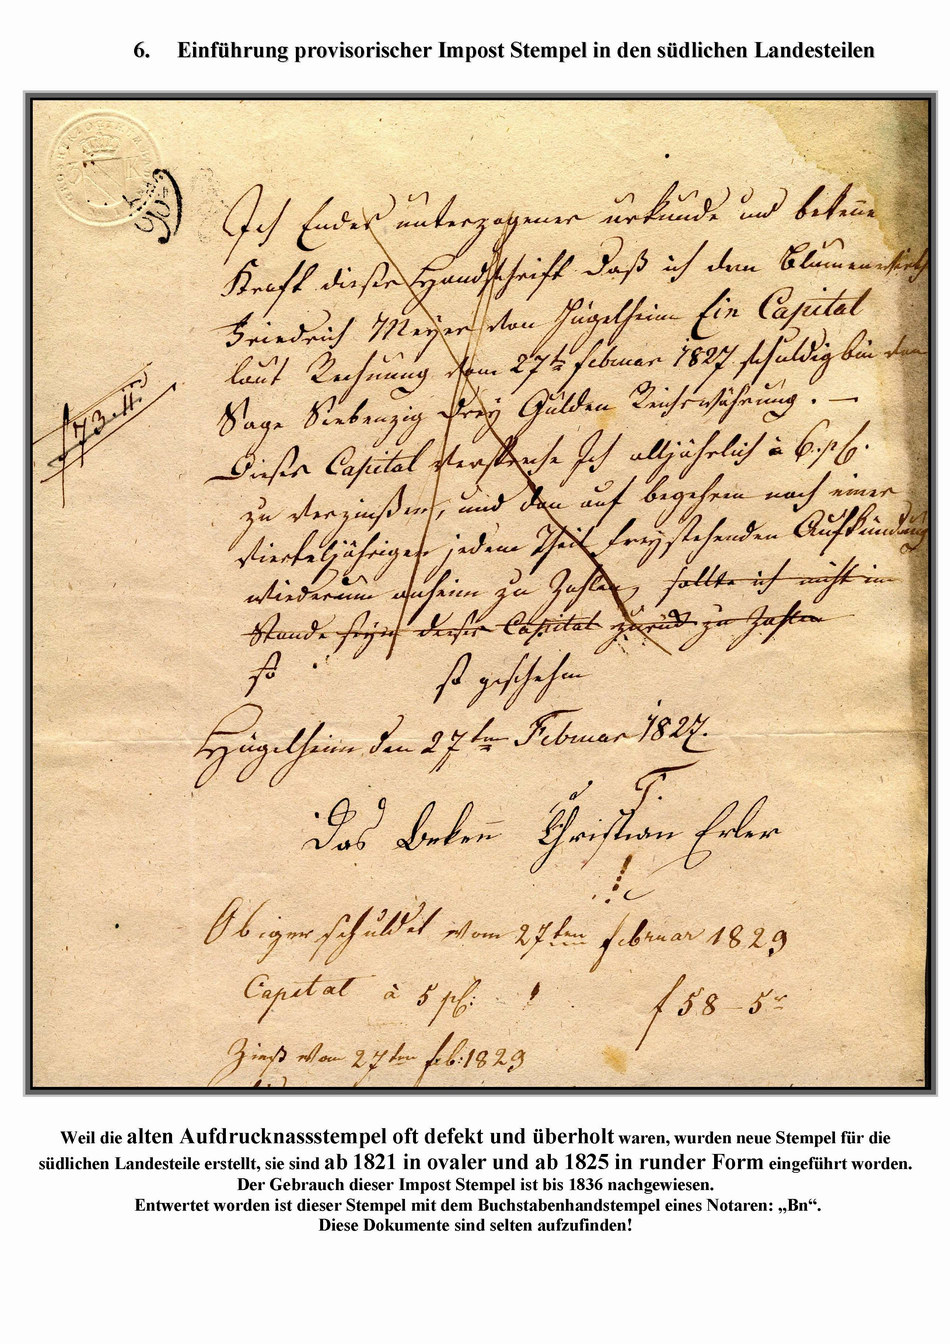 6. Einführung provisorischer Impost Stempel in den südlichen Landesteilen
Ich Endes unterzogener urkunde und bekenne
Kraft dieser Handschrift daß ich dem Blumenwirth
Friedrich Meyer von Hügelheim Ein Capital
laut Rechnung vom 27ten Februar 1827 schuldig bin
Sage Siebenzig Drey Gulden Reichswährung. —
f 73.
Dieses Capital verspreche Ich alljährlich à 6. pf.
zu verzinßen, und dan auf begehren nach einer
vierteljährigen jedem Theil freystehenden Aufkündung
wiederum anheim zu Zahlen, sollte ich nicht im
Stande seyn dieses Capital zurück zu Zahlen
so so geschehen
Hügelheim den 27ten Februar 1827.
T.
Das Beken̄ Christian Erler
Obiger schuldet vom 27ten februar 1829
Capital à 5 pf: f 58 – 5 xr
Zinß von 27ten feb: 1829
Weil die alten Aufdrucknassstempel oft defekt und überholt waren, wurden neue Stempel für die
südlichen Landesteile erstellt, sie sind ab 1821 in ovaler und ab 1825 in runder Form eingeführt worden.
Der Gebrauch dieser Impost Stempel ist bis 1836 nachgewiesen.
Entwertet worden ist dieser Stempel mit dem Buchstabenhandstempel eines Notaren: „Bn“.
Diese Dokumente sind selten aufzufinden!